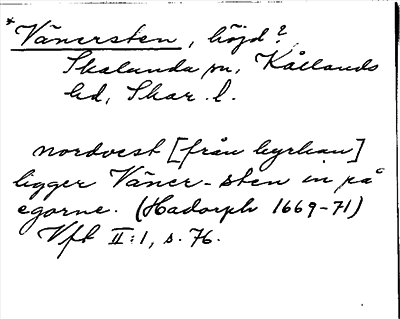 *Vänersten, höjd?
Skalunda sn, Kållands
hd, Skar. l.
nordvest [från kyrkan]
ligger Väner-sten in på
egorne. (Hadorph 1669-71)
Vft II:1, s. 76.